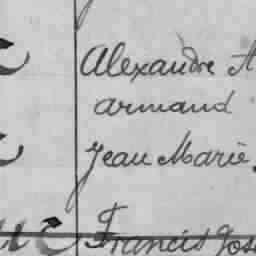 Alexandre A
armand
Jean Marie
Francis Jos